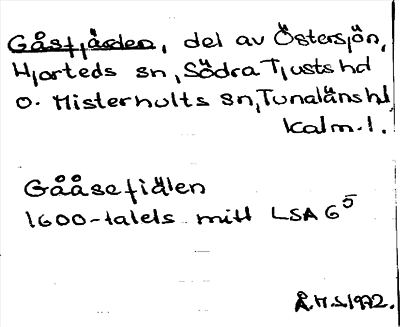 Gåsfjärden, del av Östersjön,
Hjorteds sn, Södra Tjusts hd
o. Misterhults sn, Tunaläns hd,
Kalm. l.
Gååsefiälen
1600-talets mitt LSA G5
Å.H.S. 1972.